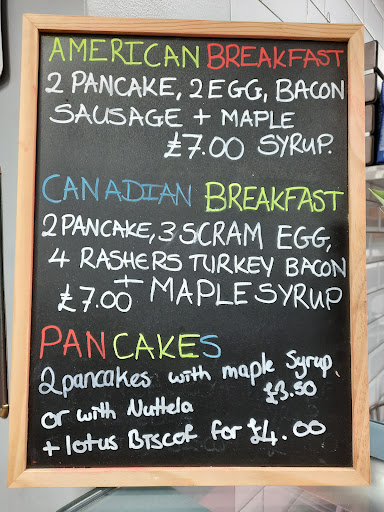 AMERICAN BREAKFAST
2 PANCAKE, 2 EGG, BACON
SAUSAGE + MAPLE
£7.00 SYRUP.
CANADIAN BREAKFAST
2 PANCAKE, 3 SCRAM EGG,
4 RASHERS TURKEY BACON
£7.00 + MAPLE SYRUP
PANCAKES
2 pancakes with maple Syrup.
£3.50
or with Nuttela
+ lotus BIscof for £4.00